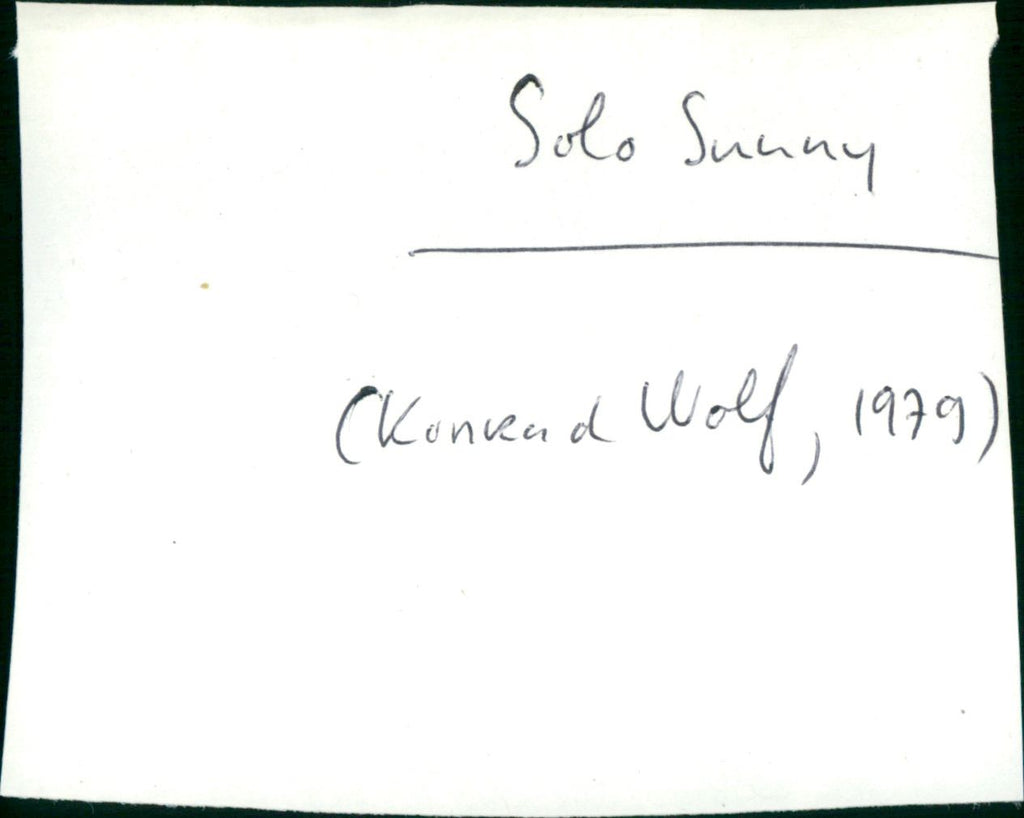 Solo Sunny
(Konrad Wolf, 1979)